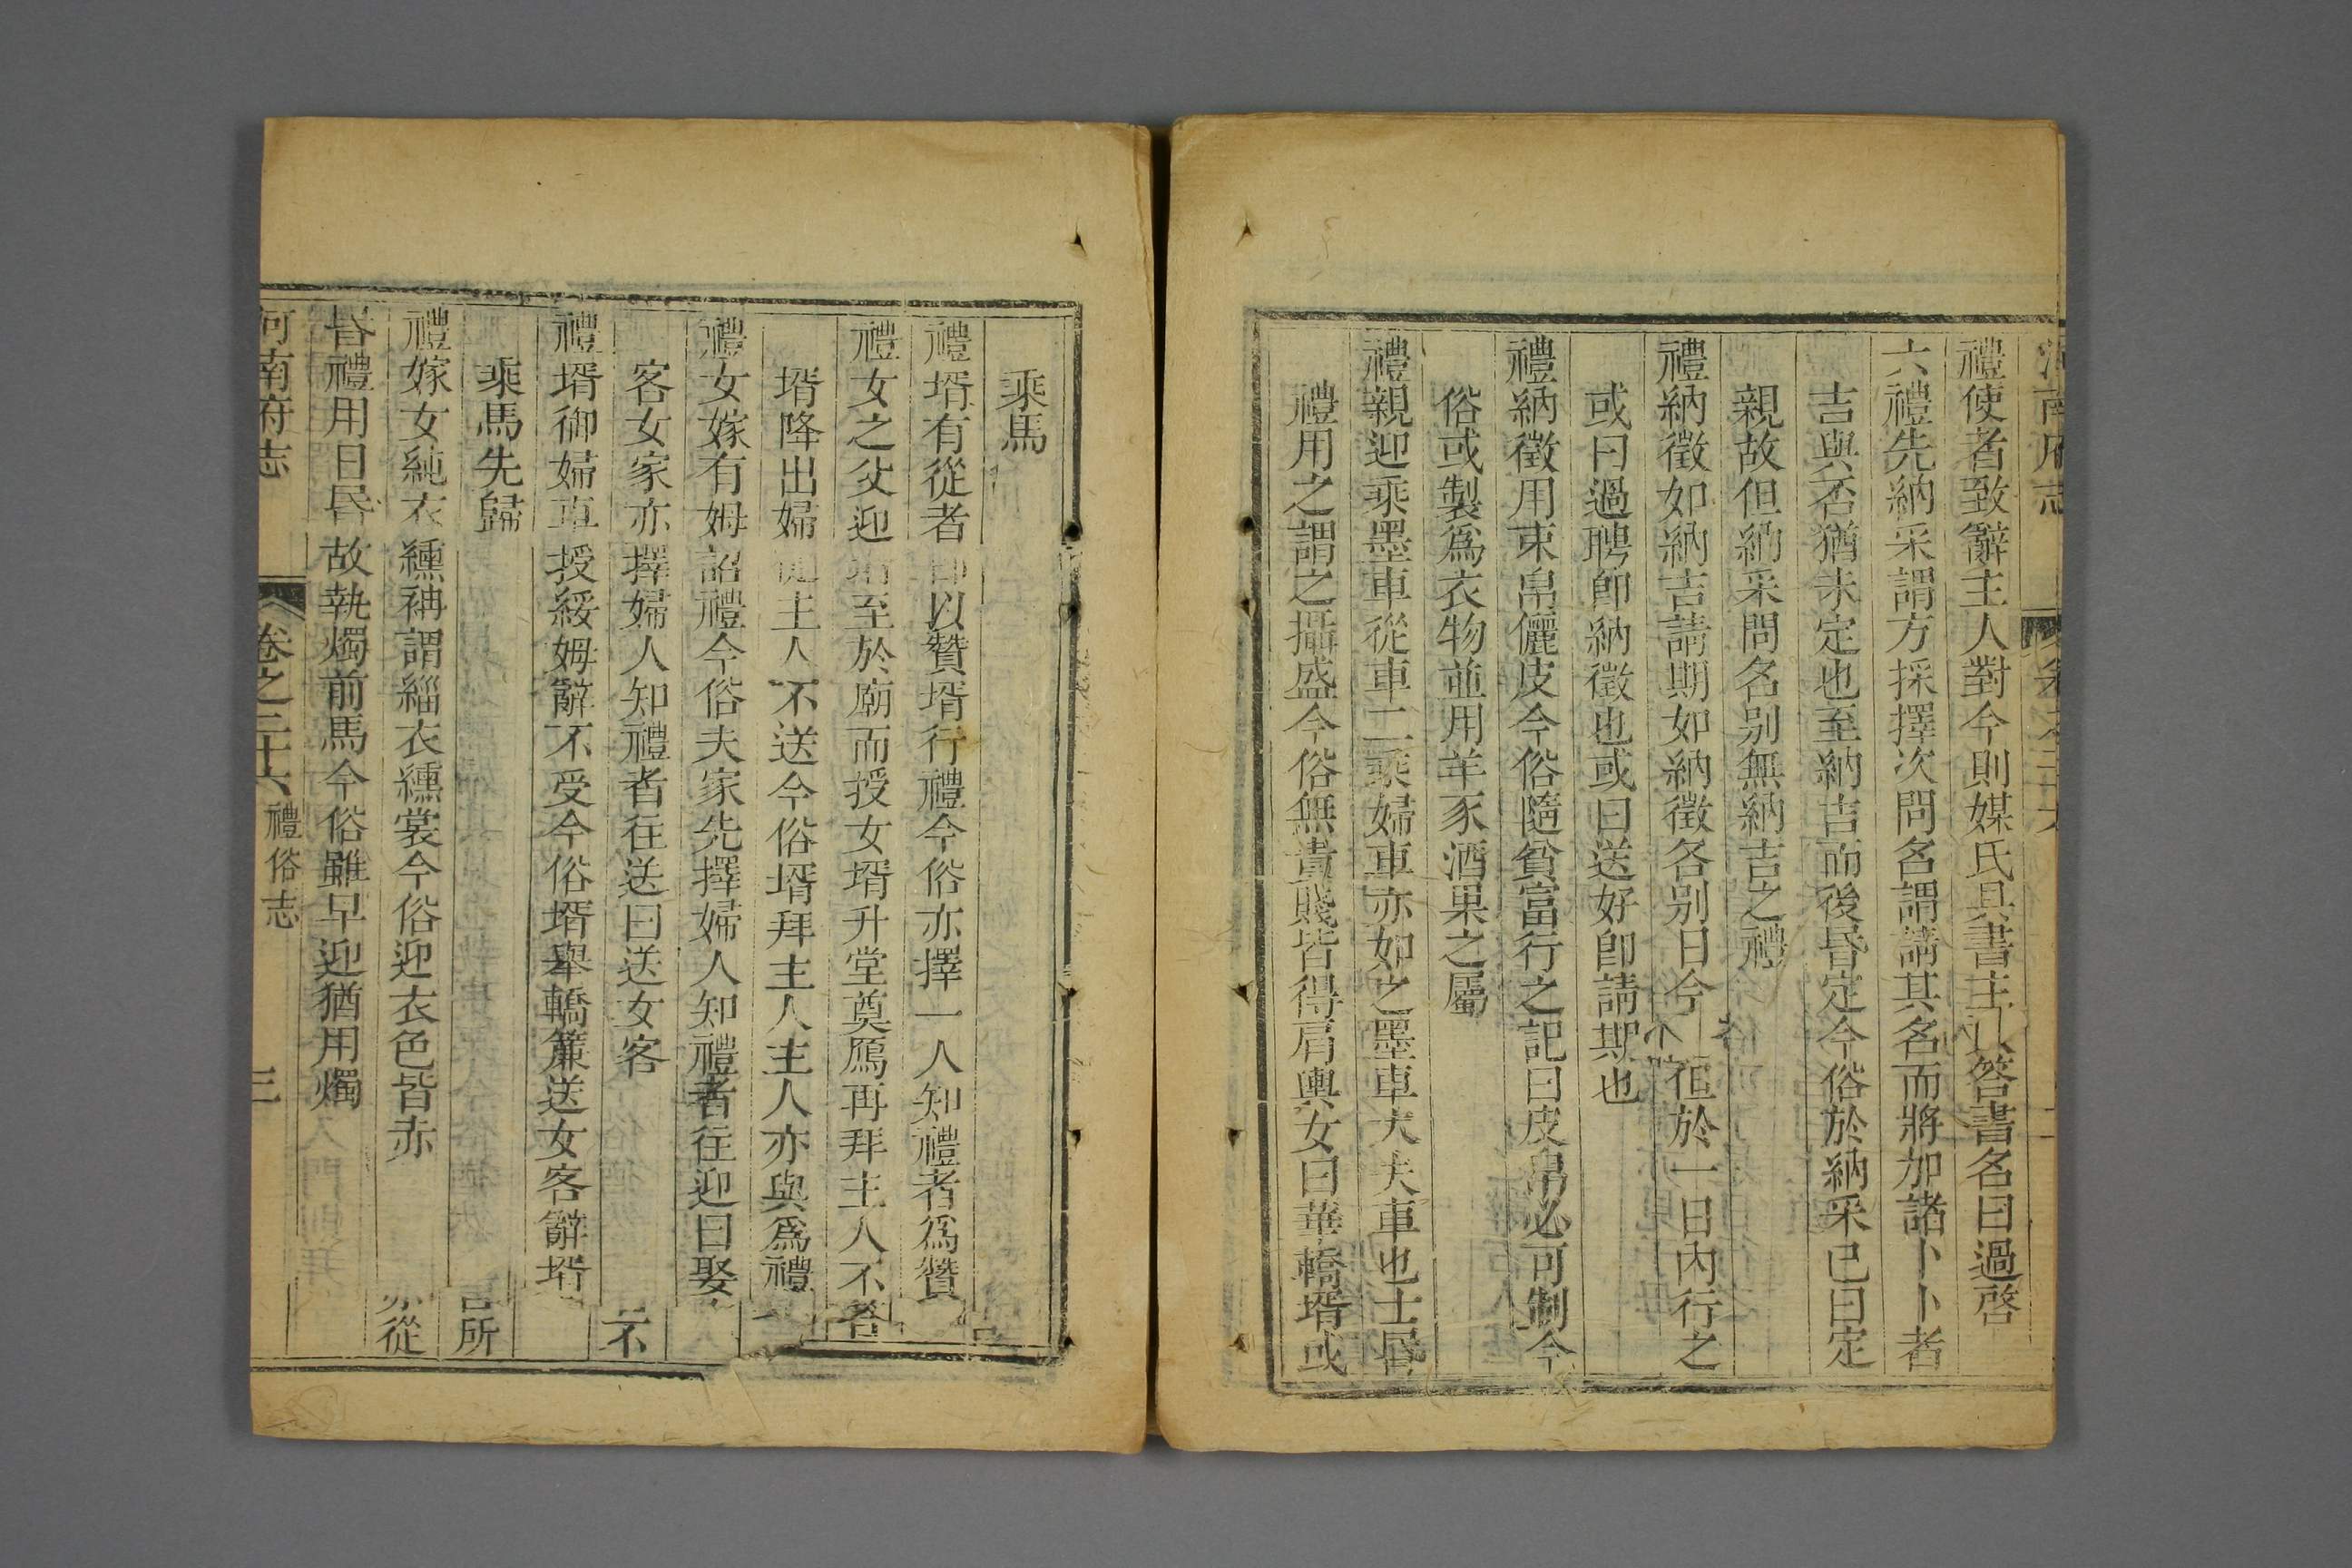 河南府志
禮使者致辭主人對今則媒氏具書主人答書名曰過啓
六禮先納采謂方採擇次問名謂請其名而將加諸卜卜者
吉與否猶未定也至納吉而後昏定今俗於納采已曰定
親故但納采問名别無納吉之禮
禮納徵如納吉請期如納徵各别日今俗徃徃於一日內行之
或曰過聘卽納徵也或曰送好卽請期也
禮納徵用束帛儷皮今俗隨貧富行之記曰皮帛必可制今
俗或製爲衣物並用羊豕酒果之屬
禮親迎乘墨車從車二乘婦車亦如之墨車大夫車也士昏
禮用之謂之攝盛今俗無貴賤皆得肩輿女曰華轎壻或
乘馬
禮壻有從者 以贊壻行禮今俗亦擇一人知禮者爲贊
禮女之父迎壻至於廟而授女壻升堂奠鴈再拜主人不答
壻降出婦從主人不送今俗壻拜主人主人亦與爲禮
禮女嫁有姆詔禮今俗夫家先擇婦人知禮者往迎曰娶
客女家亦擇婦人知禮者往送曰送女客
禮壻御婦車授綏姆辭不受今俗壻舉轎簾送女客辭壻
乘馬先歸
禮嫁女純衣纁袡謂緇衣纁裳今俗迎衣色皆赤
昏禮用日昏故執燭前馬今俗雖早迎猶用燭
河南府志 卷之二十六 禮俗志 三